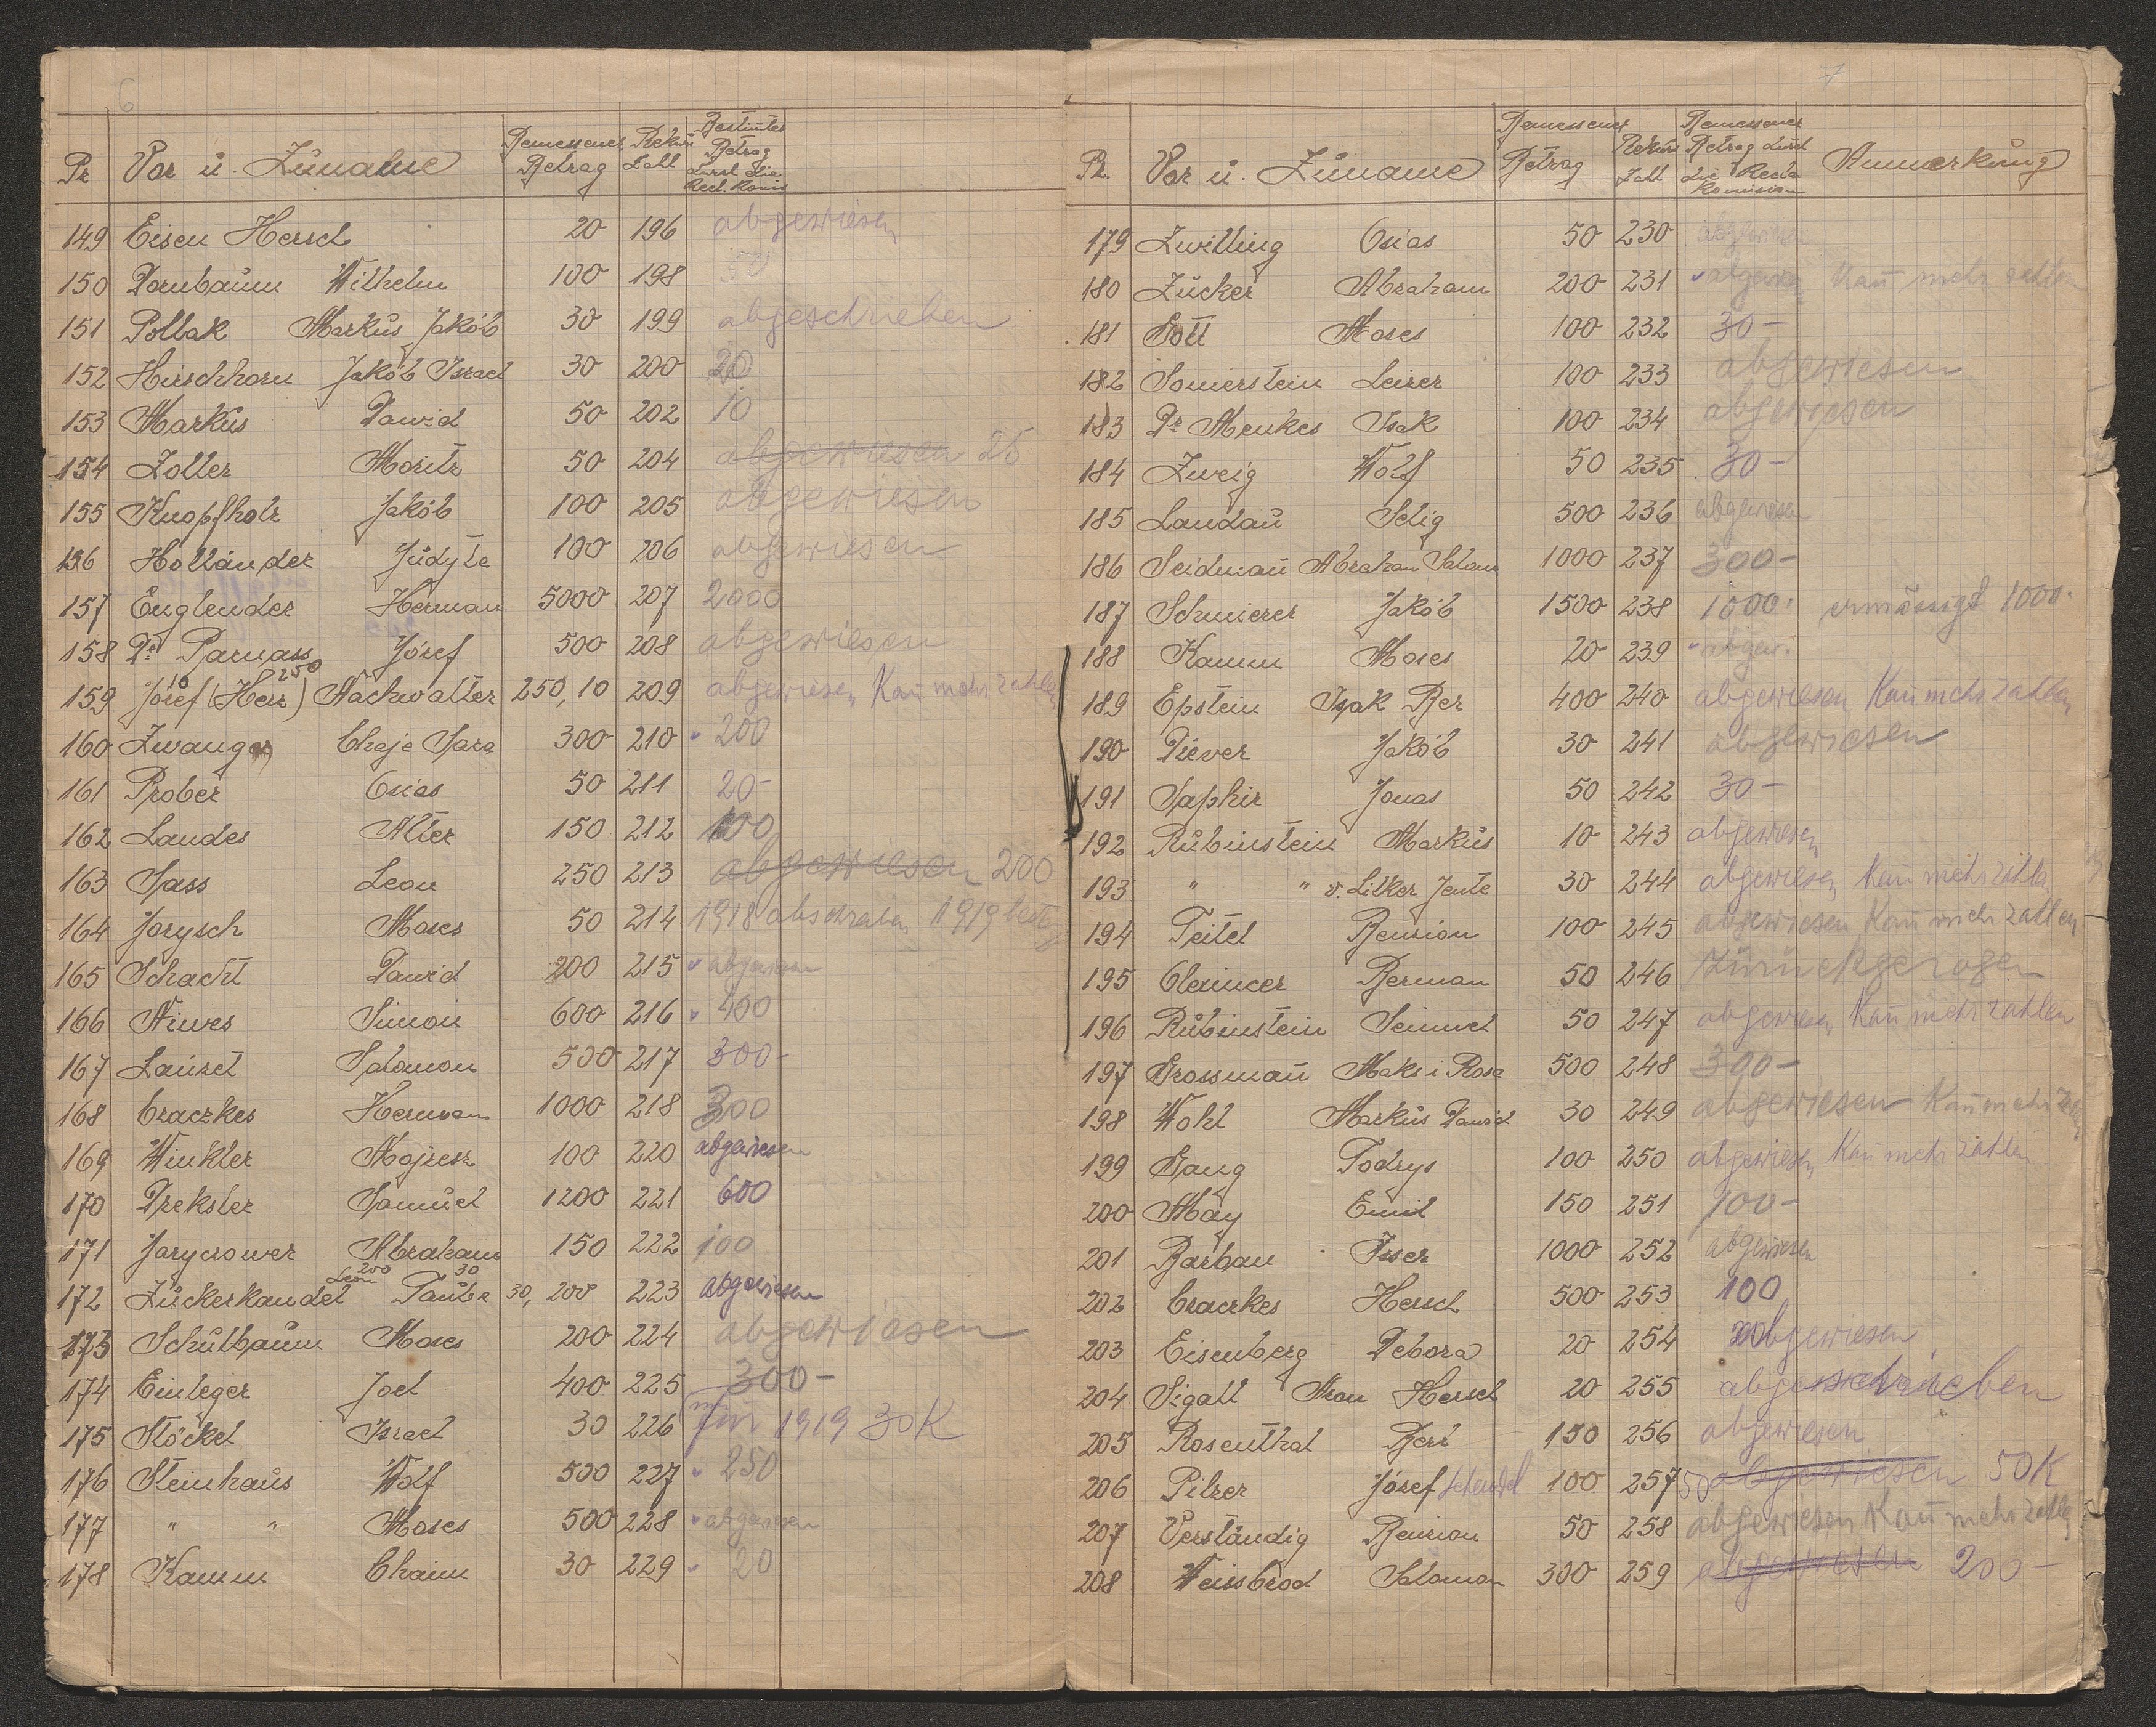 6
Pr Vor ů. Zůname Bemessener Betrag Rekurs Zahl Bestimter Betrag durch die Rekl. Komis
149 Eisen Hersch 20 196 abgewiesen
150 Dornbaům Wilhelm 100 198 50
151 Pollak Markůs Jakób 30 199 abgeschrieben
152 Hirschhorn Jakób Israel 30 200 20
153 Markůs Dawid 50 202 10
154 Zoller Moritz 50 204 abgewiesen 25
155 Knopfholz Jakób 100 205 abgewiesen
156 Holländer Jůdyta 100 206 abgewiesen
157 Englender Herman 5000 207 2000
158 Dr Parnass Józef 500 208 abgewiesen
159 Józef 10 (Herz) 250 Nachwalter 250, 10 209 abgewiesen Kañ mehr zahlen
160 Zwanger Chaje Sara 300 210 200
161 Prober Osias 50 211 20-
162 Landes Alter 150 212 100
163 Spass Leon 250 213 abgewiesen 200
164 Jorysch Moses 50 214 1918 abschreiben 1919
165 Schacht Dawid 200 215 abgewiesen
166 Niwes Simon 600 216 400
167 Laůset Salomon 500 217 300-
168 Czaczkes Herman 1000 218 300
169 Winkler Mojzesz 100 220 abgewiesen
170 Dreksler Samůel 1200 221 600
171 Jarycrower Abraham 150 222 100
172 Zůckerkandel Leon 200 Taůba 30 30, 200 223 abgewiesen
173 Schůlbaům Moses 200 224 abgewiesen
174 Einleger Joel 400 225 300-
175 Stöckel Israel 30 226 für 1919 30 K
176 Steinhaůs Wolf 500 227 250
177 " " Moses 500 228 abgewiesen
178 Kamm Chaim 30 229 20
7
Pr. Vor ů. Zůname Bemessener Betrag Rekurs Zahl Bemessener Betrag durch die Rekla Komision Anmerkůng
179 Zwilling Osias 50 230 abgewiesen
180 Zůcker Abraham 200 231 abgewiesen Kañ mehr zahlen
181 Gott Moses 100 232 30-
182 Somerstein Leizer 100 233 abgewiesen
183 Dr Menkes Isak 100 234 abgewiesen
184 Zweig Wolf 50 235 30-
185 Landaů Selig 500 236 abgewiesen
186 Seidmañ Abraham Salom 1000 237 300-
187 Schmierer Jakób 1500 238 1000 ermässigt 1000.
188 Kamm Moses 20 239 abgewi
189 Epstein Isak Ber 400 240 abgewiesen Kañ mehr zahlen
190 Diever Jakób 30 241 abgewiesen
191 Saphir Jonas 50 242 30-
192 Růbinstein Markůs 10 243 abgewiesen
193 " " v. Lilker Jente 30 244 abgewiesen Kañ mehr zahlen
194 Teitel Benzion 100 245 abgewiesen Kañ mehr zahlen
195 Cleincer Berman 50 246 Zurückgezogen
196 Růbinstein Seinwel 50 247 abgewiesen Kañ mehr zahlen
197 Grossmañ Maks i Rosa 500 248 300-
198 Wohl Markůs Dawid 30 249 abgewiesen Kañ mehr
199 Spang Todrys 100 250 abgewiesen Kañ mehr zahlen
200 May Emil 150 251 100-
201 Barban Isser 1000 252 abgewiesen
202 Czaczkes Hersch 500 253 100
203 Eisenberg Debora 20 254 abgewiesen
204 Sigall Aron Hersch 20 255 abgeschrieben
205 Rosenthal Berl 150 256 abgewiesen
206 Pilzer Józef Schendel 100 257 50 abgewiesen 50 K
207 Verständig Benzion 50 258 abgewiesen Kañ mehr zahlen
208 Weissbrod Salomon 300 259 abgewiesen 200-